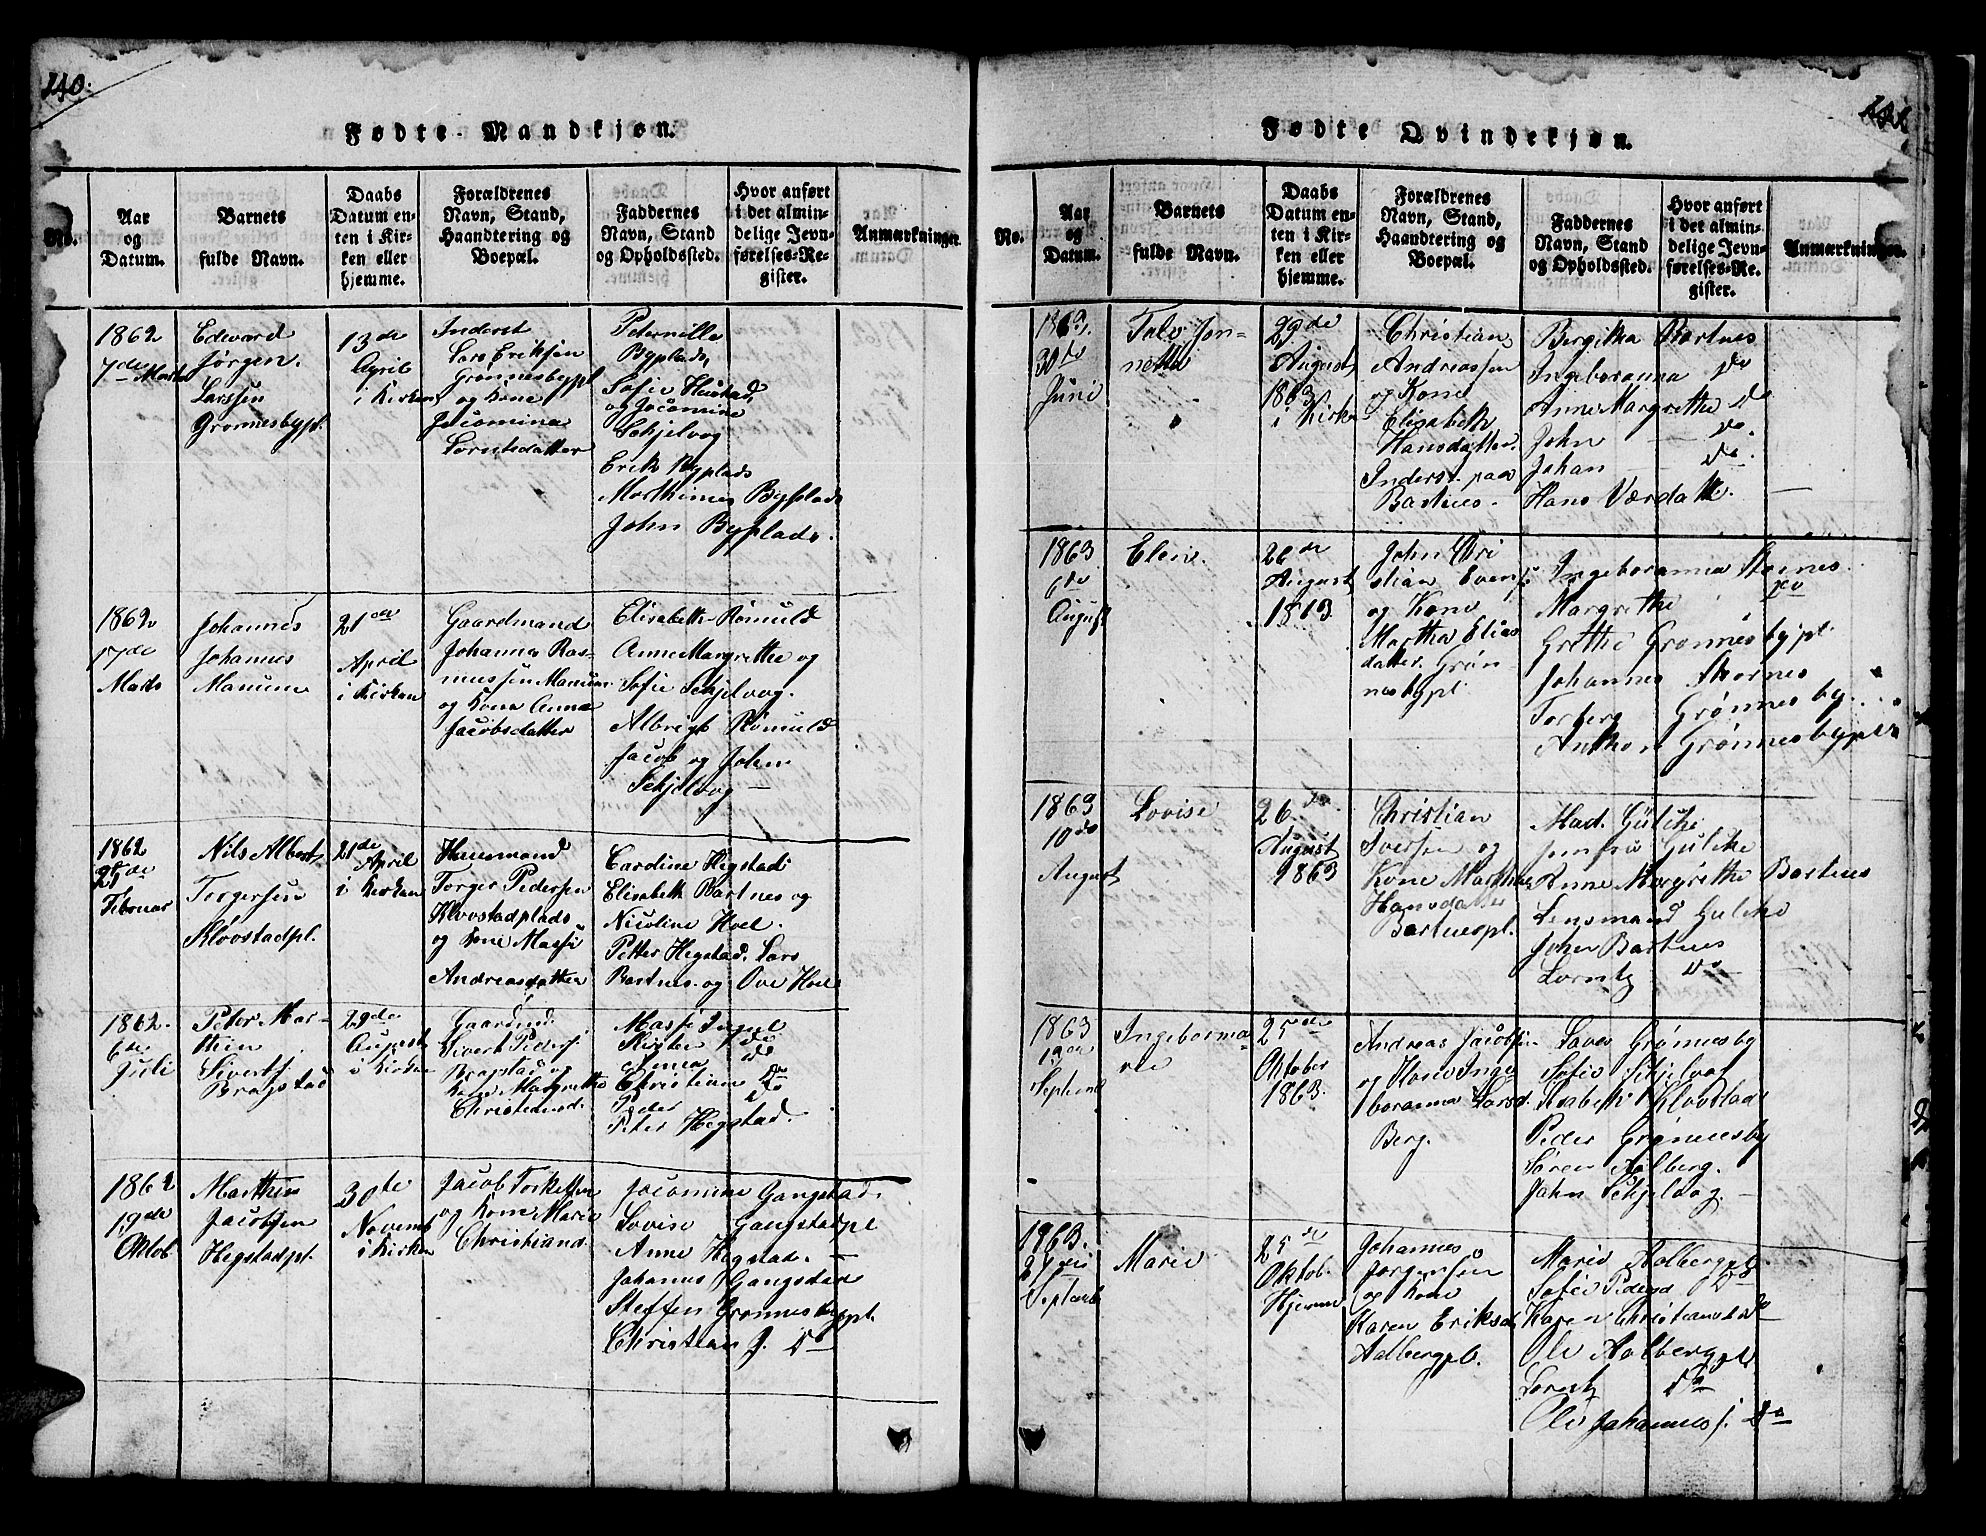 140.
Fødte Mandkjøn.
No.
Aar
og
Datum.
Barnets
fulde Navn.
Daabs
Datum en-
ten i Kir-
ken eller
hjemme.
Forældrenes
Navn, Stand,
Haandtering og
Boepæl.
Faddernes
Navn, Stand
og Opholdssted.
Hvor anført
i det almin-
delige Jevn-
førelses-Re-
gister.
Anmærkninger.
1862
7de Marts
Edevard
Jørgen.
Larssen
Grønnesbypl.
13de
April
i Kirken
Inderst
Lars Eriksen
Grønnesbypl
og Kone
Jacomina
Lorntsdatter
Peternille
Byplads,
Sofie Hustad
og Jocomine
Sehjelvog
Erik Byplads
Marthinus Byplads
John Byplads.
1862
17de
Marts
Johannes
Johannes
Manum
21de
April
i Kirken
Gaardmand
Johannes Ras-
mussen Manum
og Kone Anna
Jacobsdatter
Elisabeth Rømuld
Anne Margrethe og
Sofie Sehjelvog.
Albrigt Rømuld
Jacob og John
Sehjelvog —
1862
Februar
Nils Albert
Torgersen
Kloostadpl.
21de
April
i Kirken
Huusmand
Torger Pedersen
Kloostadplads
og Kone Massi
Andreasdatter
Cardine Hegstad
Elisabeth Bartnes og
Nicoline Hoel.
Petter Hegstad. Lars
Bartnes. og Ove Hoel
1862.
6te
Juli
Peter Mar-
thin
Sivertf
Bragstad
29de
August
i Kirken
Gaardmd.
Sivert Peders
Bragstad og
Kone Margrethe
Christiansd.
Massi
do
Anna do
Christian do
Peder do
Peter Hegstad.
1862
19de
Oktob
Marthin
Jacobsen
Hegstadpl.
30te
Novemb
i Kirken
Jacob Torkelsen
og Kone Marie
Christiand.
Jocomine Gangstad.
Lovise Gangstadpl
Anne Hegstad. —
Johanes Gangstad
Steffen Grønnesbypl.
Christian J. do
141
Fødte Qvindekjøn.
No.
Aar
og
Datum.
Barnets
fulde Navn.
Daabs
Datum en-
ten i Kir-
ken eller
hjemme.
Forældrenes
Navn, Stand,
Haandtering og
Boepæl.
Faddernes
Navn, Stand
og Opholdssted.
Hvor anført
i det almin-
delige Jevn-
førelses-Re-
gister.
Anmærkninger.
1863.
30te
Juni
Jon-
netta
29de
August
1863
i Kirken
Christian
Andreassen
og Kone
Elisabeth
Hansdatter.
Inderst paa
Bartnes.
Bergitha Bartnes
Ingeboranna do
Anne Margrethe do
John — do
Johan — do.
Hans
1863
6te
August
Elen.
26de
August
1863
John Chri
stian Evens
og Kone
Martha Elias
datter. Grøn-
nesbypl
Ingeboranna
Margrethe do
Grethe Grønnesbypl
Johannes
Torberg Grønnesby
Anthon Grønnesbypl
1863
10de
August
Lovise
26de
August
1863
Christian
Iversen og
Kone Martha
Hansdatter
Bartnespl.
Mad. Gülike
Jomfru Gulike
Anne Margrethe Bartnes
Lensmand Gulike
John Bartnes
Lorntz do
1863
Septemb
Ingeborma-
rie
25de
Oktober
1863.
Andreas Jacobsen
og Kone Inge
boranna Larsd.
Berg.
Grønnesby
Sofie Sehjelvog
Elisabeth
Peder Grønnesby
Søren Aalberg.
John Sehjelvog. —
1863.
Septemb
Marie
25de
Oktob.
Hjemme
Johannes
Jorgensen
og Kone
Karen Eriksd
Aalbergpl.
Marie Aalbergpl
Sofie Pedersd do
Karen Christiansd do
Ole Aalbergpl
Lorentz do
Ole Johannes f. do